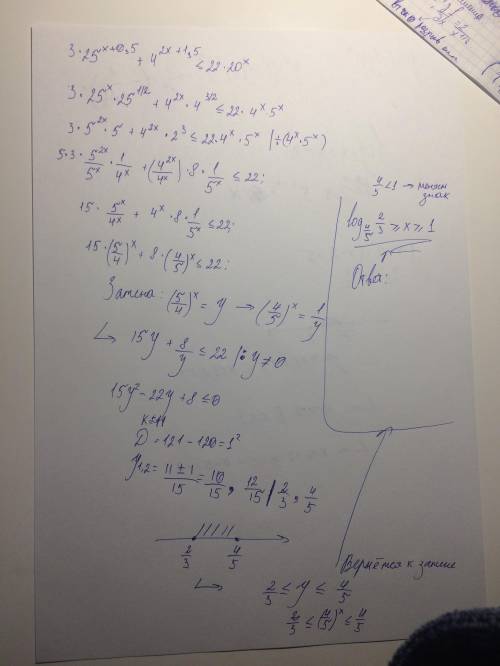 3·25^(x+0,5) + 4^(2x+1,5) ≤ 22·20^x
3·25^x·25^(1/2) + 4^(2x)·4^(3/2) ≤ 22·4^x·5^x
3·5^(2x)·5 + 4^(2x)·2^3 ≤ 22·4^x·5^x |÷(4^x·5^x)
5·3·5^(2x)/5^x·1/4^x + (4^(2x)/4^x)·8·1/5^x ≤ 22;
15·5^x/4^x + 4^x·8·1/5^x ≤ 22;
15·(5/4)^x + 8·(4/5)^x ≤ 22;
Замена: (5/4)^x = y → (4/5)^x = 1/y
↳ 15y + 8/y ≤ 22 |· y≠0
15y² - 22y + 8 ≤ 0
k=11
D = 121 - 120 = 1²
y1,2 = (11 ± 1)/15 = 10/15, 12/15 | 2/3, 4/5
2/3 4/5
↳ 2/3 ≤ y ≤ 4/5
2/3 ≤ (4/5)^x ≤ 4/5
Вернётся к замене
4/5 < 1 → меняем
знак
log_(4/5) 2/3 ≥ x ≥ 1
Ответ: